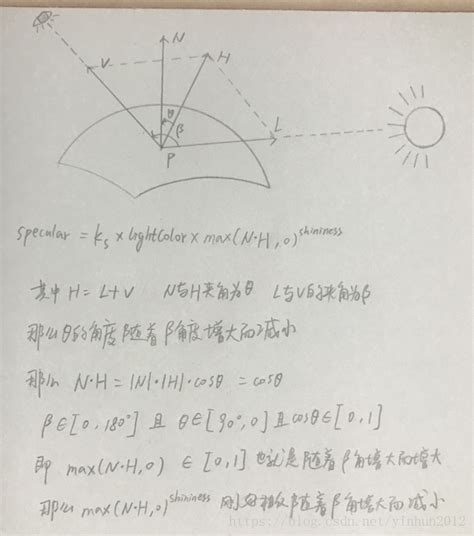 V
N
H
θ
β
L
P
specular = ks × lightColor × max(N·H,0)^shininess
其中 H = L+V N与H夹角为θ L与V的夹角为β
那么θ的角度随着β角度增大而减小
那么 N·H = |N|·|H|·cosθ = cosθ
β∈[0,180°] 且 θ∈[90°,0] 且cosθ∈[0,1]
即 max(N·H,0) ∈ [0,1] 也就是随着β角增大而增大
那么max(N·H,0)^shininess 刚好相反随着β角增大而减小
https://blog.csdn.net/yinhun2012